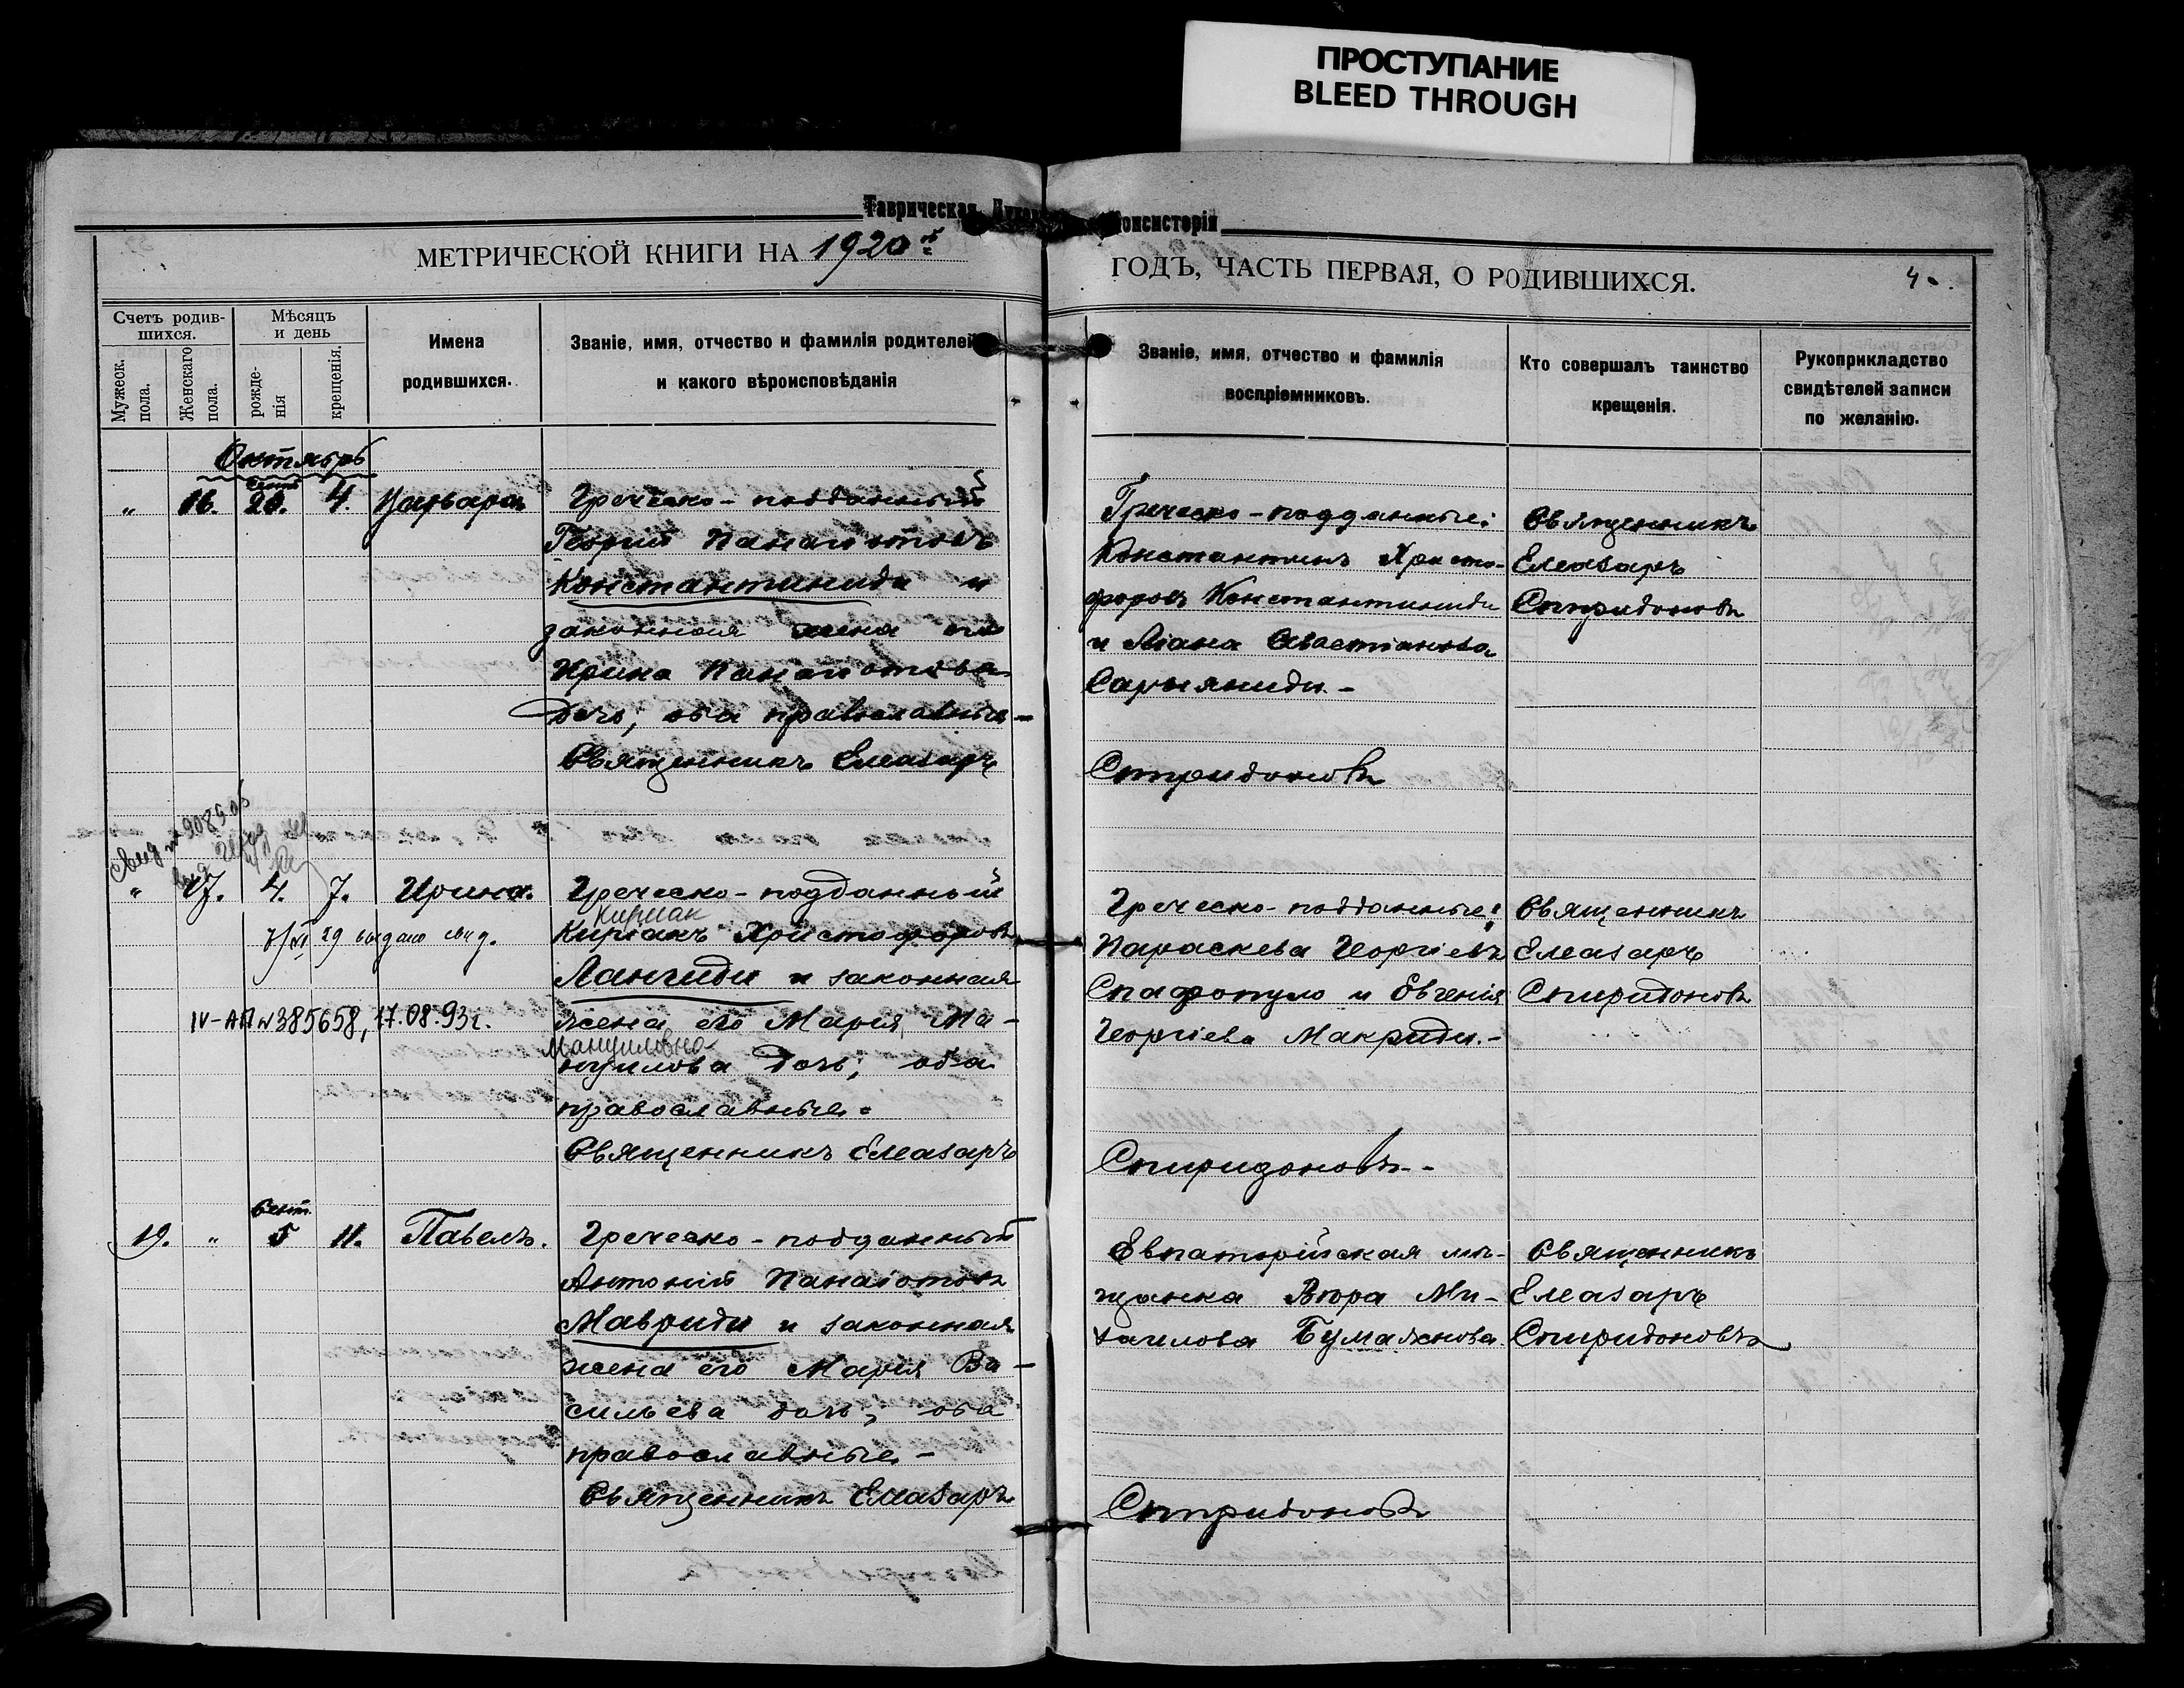 ПРОСТУПАНИЕ
BLEED THROUGH
Таврическая Консисторія
МЕТРИЧЕСКОЙ КНИГИ НА 1920 й
ГОДЪ, ЧАСТЬ ПЕРВАЯ, О РОДИВШИХСЯ.
Счетъ родив-
шихся.
Мужеск.
пола.
Женскаго
пола.
Мѣсяцъ
и день
рожде-
нія
крещенія.
Имена
родившихся.
Званіе, имя, отчество и фамилія родителей
и какого вѣроисповѣданія
Званіе, имя, отчество и фамилія
воспріемниковъ.
Кто совершалъ таинство
крещенія.
Рукоприкладство
свидѣтелей записи
по желанію.
Октябрь
Сент.
„ 16. 20. 4. Варвара
Греческо-подданный
Георгій Панаіотовъ
Константиниди и
законная жена его
Ирина Панаіотова
дочь, оба православные-
Священникъ Елеазаръ
Греческо-подданные:
Константинъ Христо-
форовъ Константиниди
и Ліана Савастіанова
Сарыяниди.-
Спиридоновъ
Священникъ
Елеазаръ
Спиридоновъ
свид №908905
" 17. 4. 7. Ирина.
7/XI 29 выдано свид.
IV-АП №385658, 17.08.93г.
Греческо-подданный
Кириак
Киріакъ Христофоровъ
Лангиди и законная
жена его Марія Ма-
Мануиловна
нуилова дочь; оба
православные.
Священникъ Елеазаръ
Греческо-подданные:
Параскева Георгіевъ
Спафопуло и Евгенія
Георгіева Макриди.-
Спиридоновъ.-
Священникъ
Елеазаръ
Спиридоновъ
Сент.
19. „ 5 11. Павелъ.
Греческо-подданный
Антоній Панаіотовъ
Мавриди и законная
жена его Марія Ва-
сильева дочь, оба
православные.-
Священникъ Елеазаръ
Евпаторійская мѣ-
щанка Вѣра Ми-
хаилова Бумажнова.
Спиридоновъ
Священникъ
Елеазаръ
Спиридоновъ